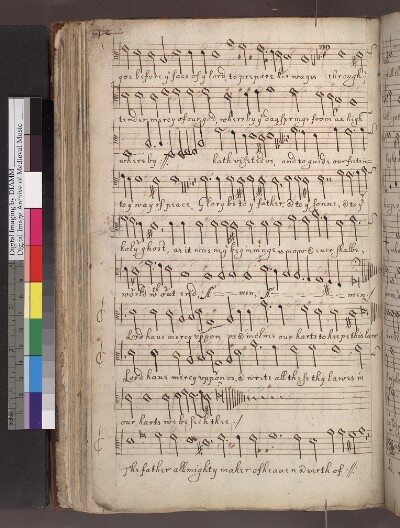 goe before yͤ face of yͤ lord, to prepare his wayes through yͤ
tender mercy of our god, wherby yͤ day springe from an high
wherby hath visited us, and to guide our feete in
to yͤ way of peace, Glory be to yͤ father, & to yͤ sonne, & to yͤ
holy ghost, as it was in yͤ beginninge is now & ever shalbe
world wͭʰout end, A men, A men
Lord have mercy uppon us & incline our harts to keepe this law
Lord have mercy uppon us, & write all these thy lawes in
our harts we beseech thee ./
The father allmighty maker of heaven & earth of
Digital Imaging by DIAMM
Digital Image Archive of Medieval Music